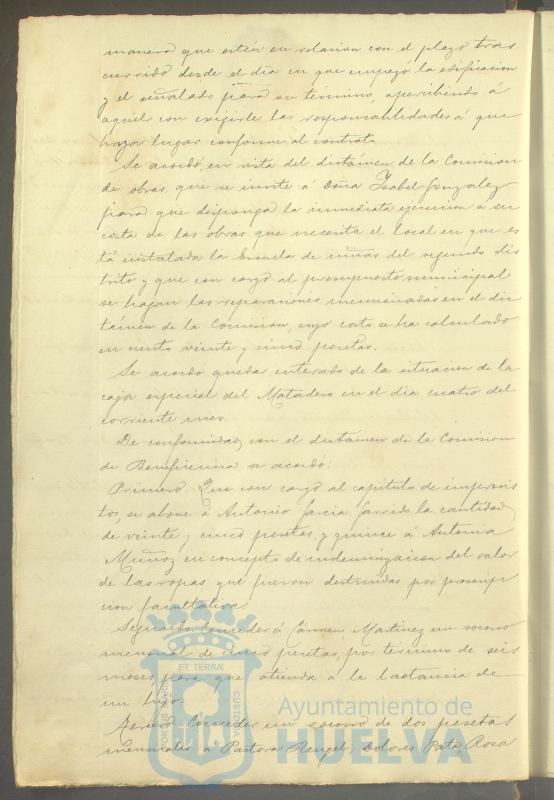 manera que estén en relacion con el plazo tras
currido desde el dia en que empezó la edificacion
y el señalado para su término, apercibiendo á
aquel con exijirle las responsabilidades á que
haya lugar conforme al contrato.
Se acordó, en vista del dictámen de la Comision
de obras, que se invite á doña Isabel Gonzalez
para que disponga la inmediata ejecucion a su
costa de las obras que necesita el local en que es
tá instalada la Escuela de niñas del segundo dis
trito y que con cargo al presupuesto municipal
se hagan las reparaciones mencionadas en el dic
támen de la Comision, cuyo costo se ha calculado
en ciento veinte y cinco pesetas.
Se acordó quedar enterado de la situacion de la
caja especial del Matadero en el dia cuatro del
corriente mes.
De conformidad con el dictamen de la Comision
de Beneficencia se acordó:
Primero. Que con cargo al capítulo de imprevis
tos, se abone á Antonio Garcia Garrido la cantidad
de veinte y cinco pesetas y quince á Antonia
Muñoz en concepto de indemnizacion del valor
de las ropas que fueron destruidas por prescrip
cion facultativa.
Segundo. Conceder á Cármen Martinez un socorro
mensual de cinco pesetas, por término de seis
meses para que atienda á la lactancia de
un hijo.
Conceder un socorro de dos pesetas
mensuales a Pastora Rengel, Dolores Rosa
ET TERRÆ
PORTUS MARIS
CUSTODIA
Ayuntamiento de
HUELVA